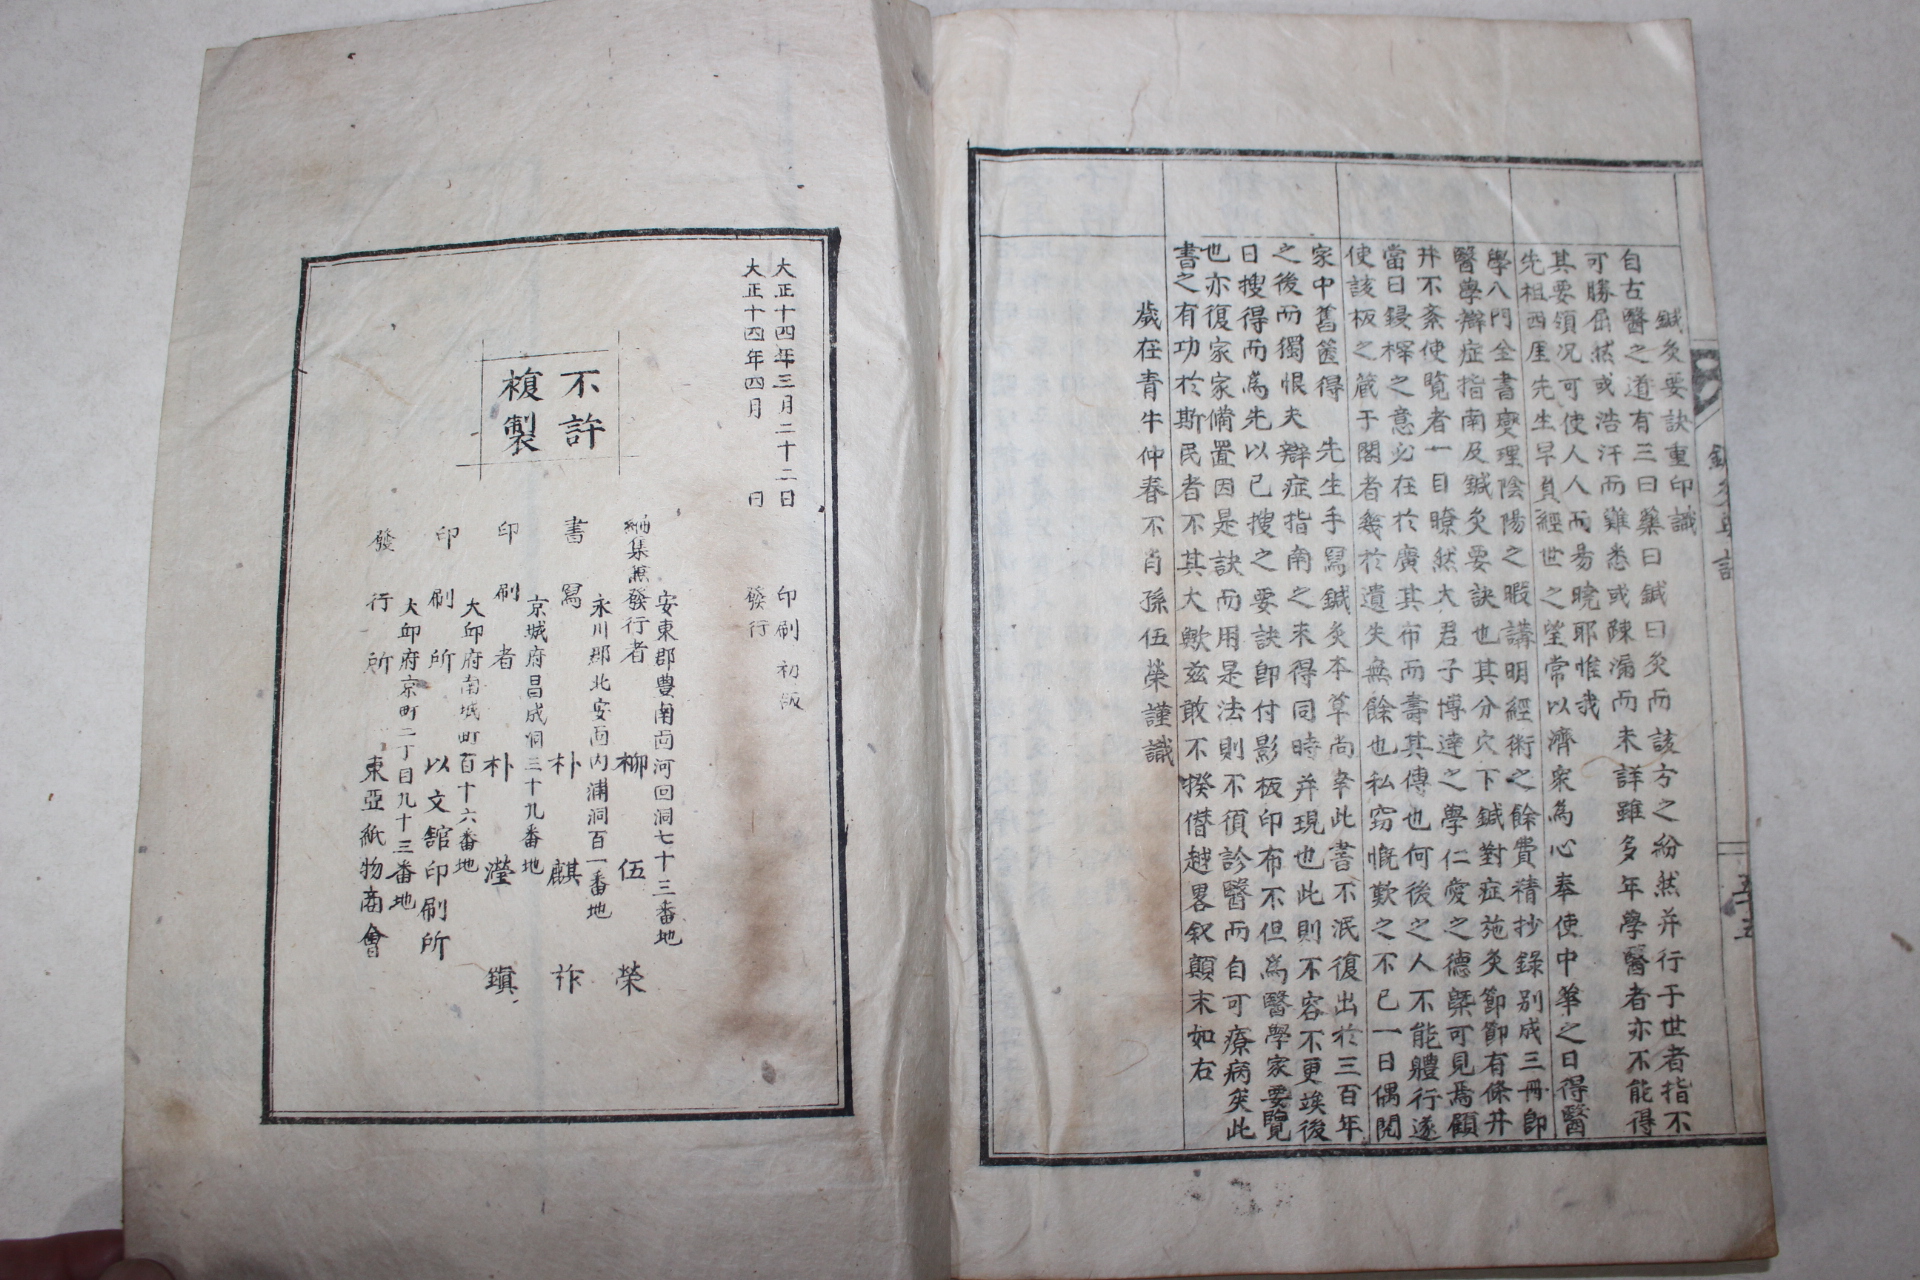 鍼灸要訣重印識
自古醫之道有三曰藥曰鍼曰灸而該方之紛然并行于世者指不
可勝屈然或浩汗而難悉或陳漏而未詳雖多年學醫者亦不能得
其要領况可使人人而易曉耶惟我
先祖西厓先生早負經世之望常以濟衆為心奉使中華之日得醫
學八門全書燮理陰陽之暇講明經術之餘費精抄錄别成三冊卽
醫學辯症指南及鍼灸要訣也其分穴下鍼對症施灸節節有條井
井不紊使覽者一目暸然大君子博達之學仁愛之德槩可見焉顧
當日鋟榟之意必在於廣其布而壽其傳也何後之人不能體行遂
使該板之藏于閣者幾於遺失無餘也私窃慨歎之不已一日偶閱
家中舊篋得　先生手寫鍼灸本草尚幸此書不泯復出於三百年
之後而獨恨夫辯症指南之未得同時并現也此則不容不更竢後
日搜得而爲先以已搜之要訣卽付影板印布不但爲醫學家要覽
也亦復家家備置因是訣而用是法則不須診醫而自可療病矣此
書之有功於斯民者不其大歟兹敢不揆僭越畧叙顛末如右
歲在青牛仲春不肖孫伍榮謹識
鍼灸要訣
五十五
大正十四年三月二十二日　印刷初版
大正十四年四月　　日　發行
不許
複製
安東郡豊南面河回洞七十三番地
編集兼發行者　柳伍榮
永川郡北安面内浦洞百一番地
書寫　朴麒祚
京城府昌成洞三十九番地
印刷者　朴瀅鎭
大邱府南城町百十六番地
印刷所　以文舘印刷所
大邱府京町二丁目九十三番地
發行所　東亞紙物商會